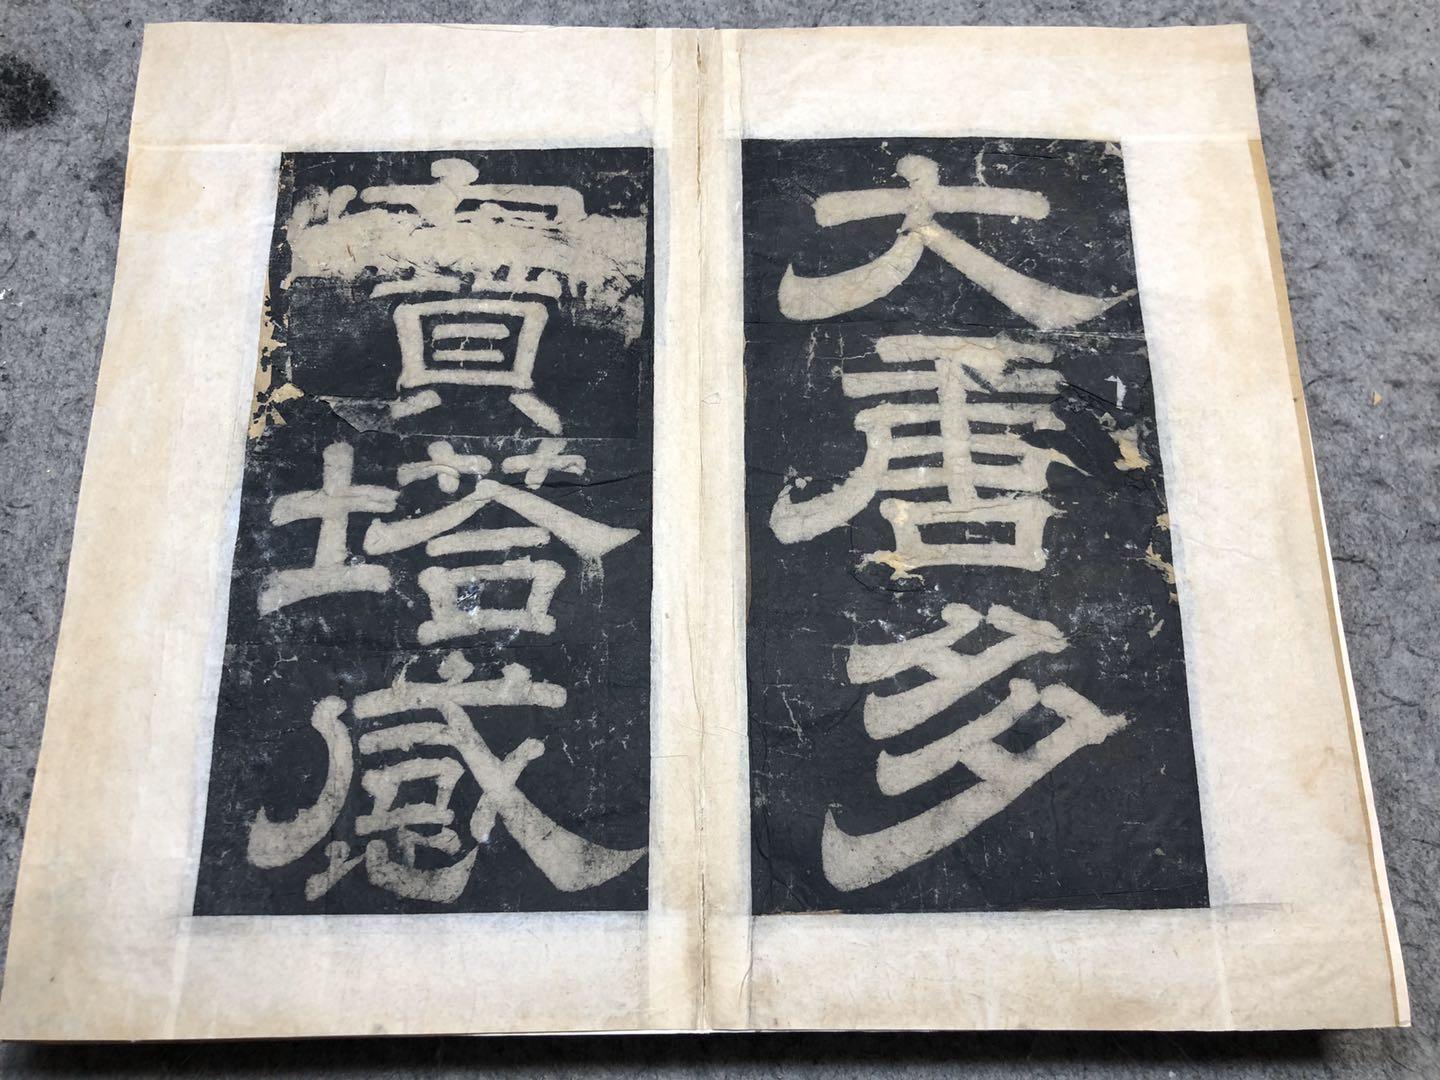 大唐多
寶塔感